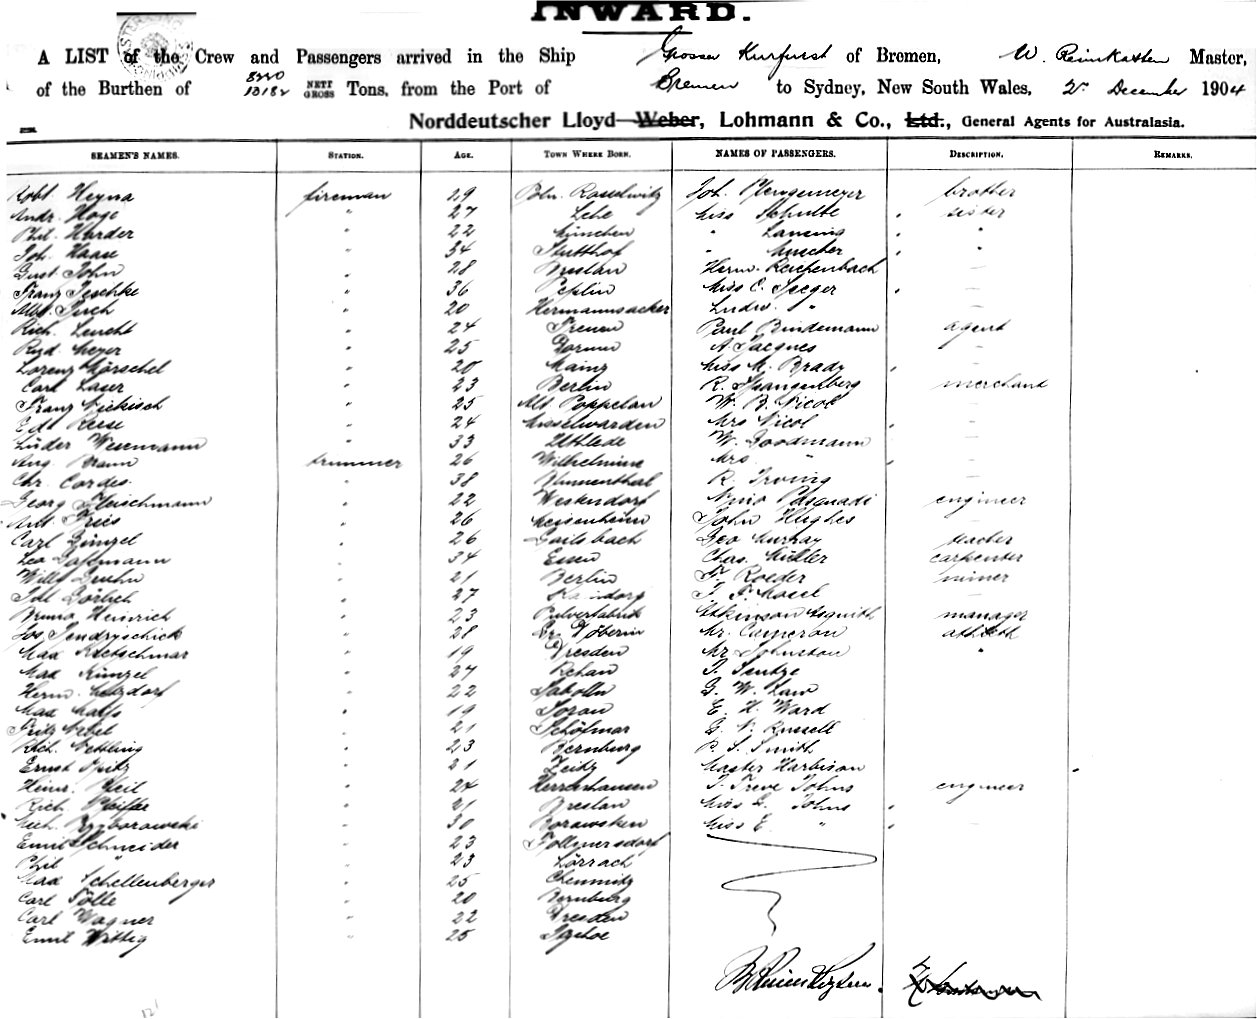 INWARD.
A LIST of the Crew and Passengers arrived in the Ship Grosser Kurfurst of Bremen, W. Reimkasten Master,
of the Burthen of 8220 13182 NETT GROSS Tons, from the Port of Bremen to Sydney, New South Wales, 25 December 1904
Norddeutscher Lloyd Weber, Lohmann & Co., Ltd., General Agents for Australasia.
SEAMEN'S NAMES. STATION. AGE. TOWN WHERE BORN. NAMES OF PASSENGERS. DESCRIPTION. REMARKS.
Robt. Heyna fireman 29 Rosselwitz Joh. brother
Andr. Hoge " 27 Lehe Miss Schulte sister
Phil. Harder " 22 München " Lansing "
Joh. Haase " 34 Stutthof " Muscher "
Gust. John " 28 Breslau Herm. Reichenbach
Franz Jeschke " 36 Peplin Miss C. Jaeger
" 20 Hermannsacker Ludw. "
Rich. Leucht " 24 Treuen Paul Bindemann agent
Meyer " 25 A. Jacques
Lorenz Mörschel " 20 Mainz Miss M. Brady
Carl Laser " 23 Berlin R. Spangenberg merchant
Franz Nickisch " 25 Alt. Poppelau W. B. Nicol
Ed. Reese " 24 Misselwarden Mrs Nicol
Lüder Wesemann " 33 Uthlede W. Goodmann
Aug. Braun trimmer 26 Wilhelmine Mrs "
Chr. Cordes " 38 Blumenthal R. Irving
Georg Fleischmann " 22 Westendorf Nino Pasquadi engineer
Ant. Fries " 26 Meisenheim John Hughes
Carl Günzel " 26 Gailsbach Geo Murray teacher
Leo " 34 Essen Chas. Müller carpenter
Willy Gruhn " 21 Berlin F. Roeder miner
Görlich " 27
Bruno Heinrich " 23 Pulverfabrik Atkinson Asquith manager
Jos. Jendryschick " 28 Gr. Döbern Mr. Cameron athleth
Max Kretschmar " 19 Dresden Mr Johnston "
Max Künzel " 27 Rehau
Herm. Metzdorf " 22 G. W. Law
Max " 19 Soran E. H. Ward
Fritz Nebel " 21 Schöfmar G. N. Russell
Rich. Nettling " 23 Bernburg P. S. Smith
Ernst Opitz " 21 Zeitz Master Harbison
Heinr. Pfeil " 24 Herrenhausen J. Treve Johns engineer
Rich. Pfeifer " 21 Breslau Miss G. Johns
Przyborowski " 30 Borawsken Miss E. "
Emil Schneider " 23
Phil. " " 23 Lörrach
Max Schellenberger " 25 Chemnitz
Carl Tölle " 20 Bernburg
Carl Wagner " 22 Dresden
Emil Wittig " 25 Itzehoe